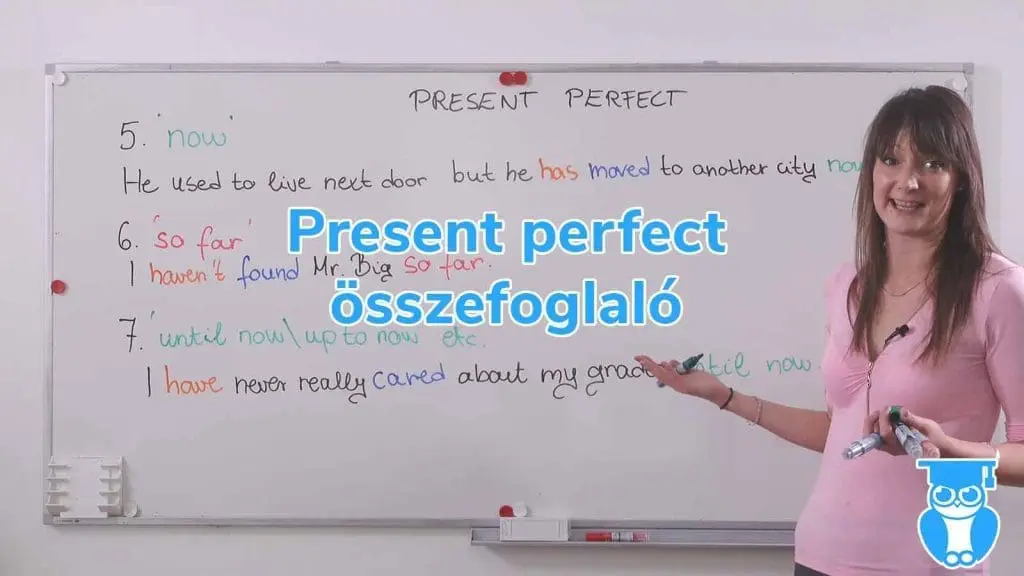 PRESENT PERFECT
5. 'now'
He used to live next door but he has moved to another city now
6. 'so far'
I haven't found Mr. Big so far.
Present perfect
összefoglaló
7. 'until now\up to now etc.
I have never really cared about my until now.